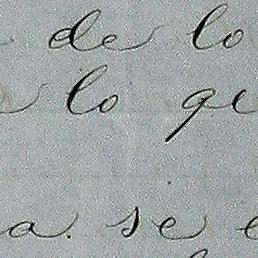 de lo
lo qu
a. se e